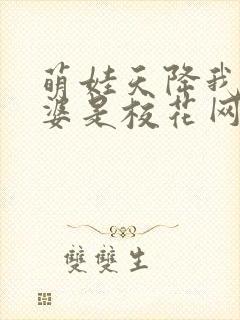 萌娃天降我
婆是校花网
雙雙生